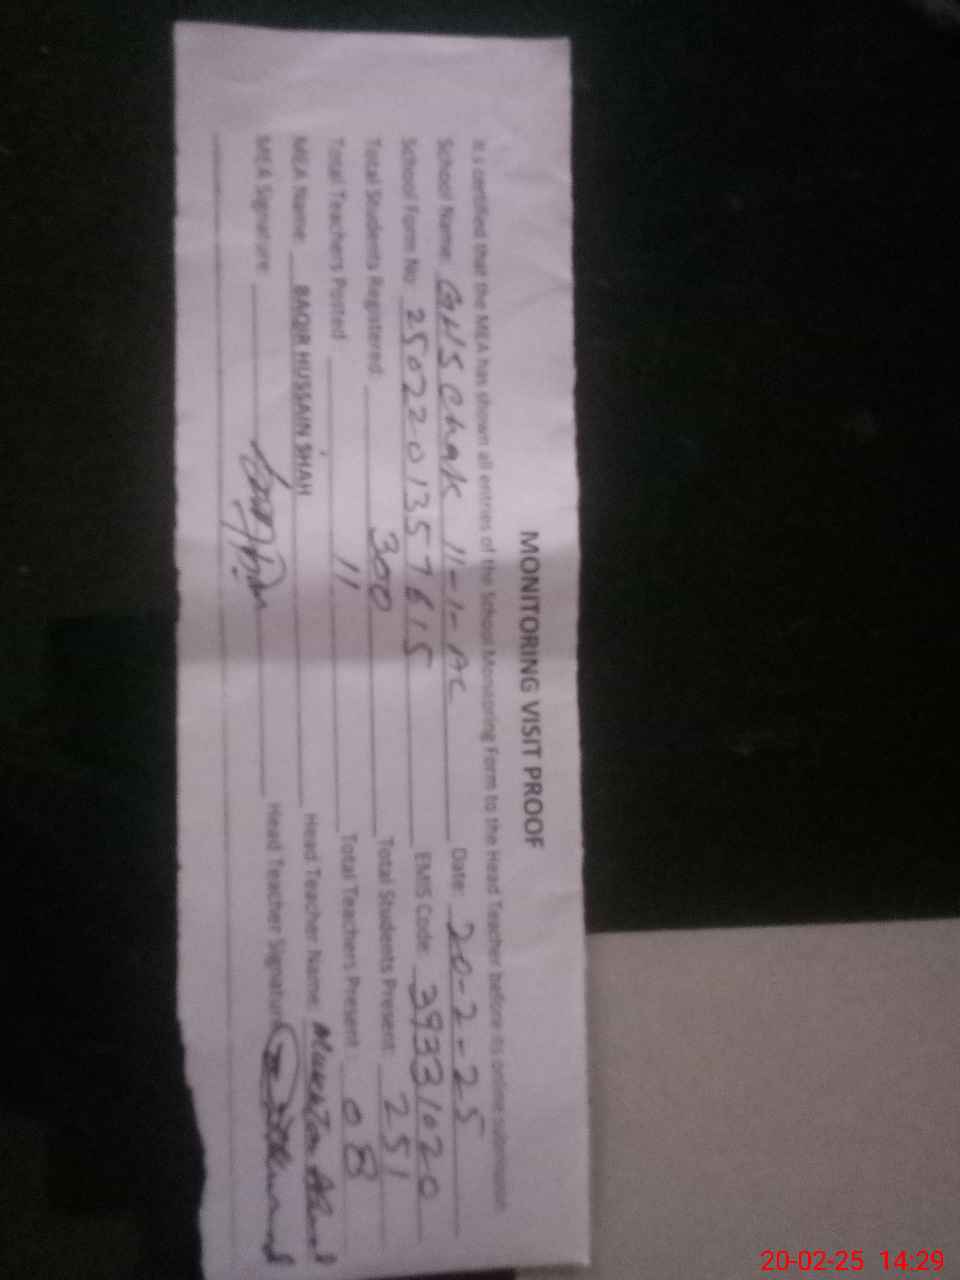 MONITORING VISIT PROOF
It is certified that the MEA has shown all entries of the School Monitoring Form to the Head Teacher before its online submission
School Name: GHS Chak 11-1-AC Date: 20-2-25
School Form No: 2502201357615 EMIS Code: 39331020
Total Students Registered: 300 Total Students Present: 251
Total Teachers Posted: 11 Total Teachers Present: 08
MEA Name: BAQIR HUSSAIN SHAH Head Teacher Name:
MEA Signature: Head Teacher Signature
20-02-25 14:29